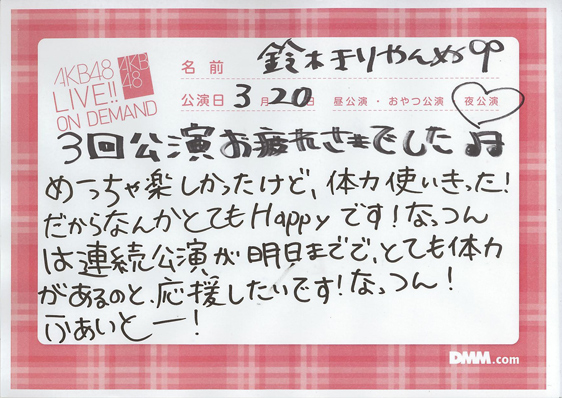 AKB48
LIVE!!
ON DEMAND
AKB
48
名前 鈴木まりやんぬ
公演日 3月20日 昼公演・おやつ公演 夜公演
3回公演お疲れさまでした♫
めっちゃ楽しかったけど、体力使いきった!
だからなんかとてもHappyです!なっつん
は連続公演が明日までで、とても体力
があるのと、応援したいです!なっつん!
ふぁいとー!
DMM.com